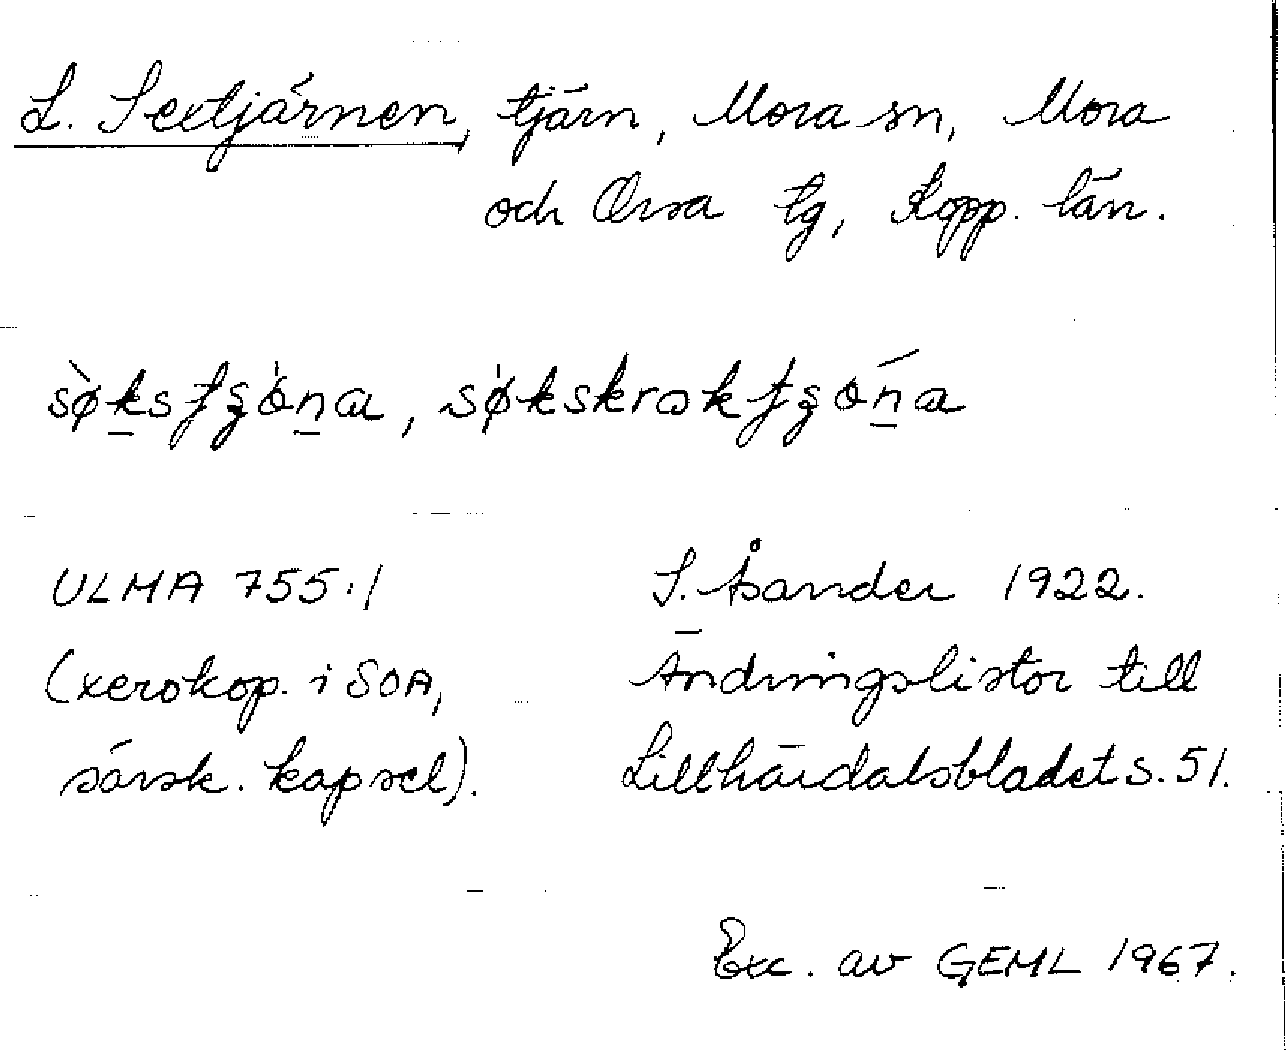 L. Sextjärnen, tjärn, Mora sn, Mora
och Orsa tg, Kopp. län.
ULMA 755:1
(xerokop. i SOA,
särsk. kapsel).
S. Åsander 1922.
Ändringslistor till
Lillhärdalsbladet s. 51.
Exc. av GEML 1967.